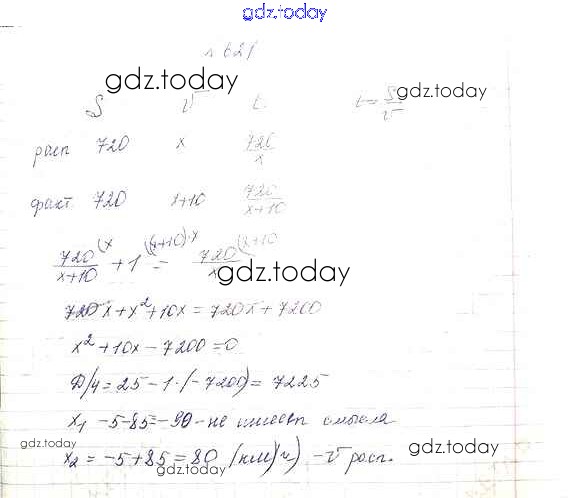 gdz.today
№ 621
gdz.today
S V t t = S/V gdz.today
расп 720 x 720/x
факт 720 x+10 720/(x+10)
720/(x+10) (x + 1 ((x+10)·x = 720/x (x+10
gdz.today
720x + x² + 10x = 720x + 7200
x² + 10x - 7200 = 0
Д/4 = 25 - 1·(-7200) = 7225
x₁ -5-85 = -90 - не имеет смысла
gdz.today gdz.today
x₂ = -5+85 = 80 (км/ч) - V расп.
gdz.today